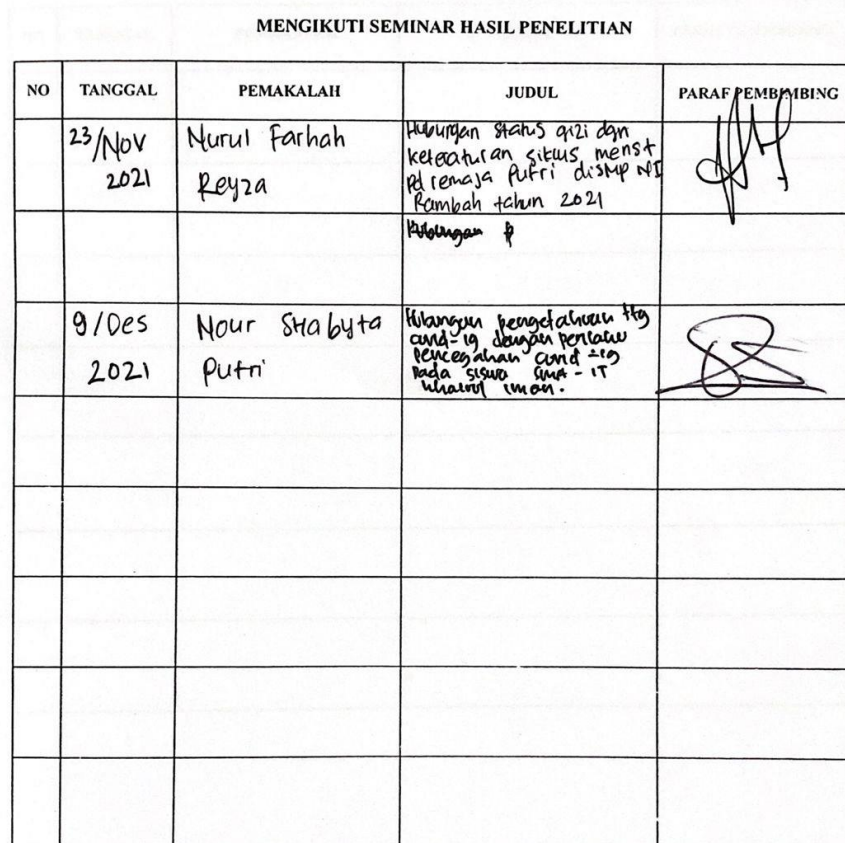 MENGIKUTI SEMINAR HASIL PENELITIAN
NO TANGGAL PEMAKALAH JUDUL PARAF PEMBIMBING
23/Nov
2021
Nurul Farhah
Reyza
Hubungan status gizi dgn
keteraturan siklus menst
pd remaja Putri di SMP N1
Rambah tahun 2021
Hubungan p
9/Des
2021
Nour Shabyta
Putri
Hubungan pengetahuan ttg
covid-19 dengan perilaku
pencegahan covid-19
pada siswa SMA-IT
khairul iman.